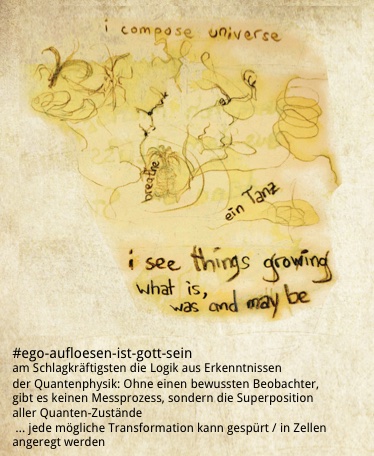 i compose universe
breathe
ein Tanz
i see things growing
what is,
was and may be
#ego-aufloesen-ist-gott-sein
am Schlagkräftigsten die Logik aus Erkenntnissen
der Quantenphysik: Ohne einen bewussten Beobachter,
gibt es keinen Messprozess, sondern die Superposition
aller Quanten-Zustände
... jede mögliche Transformation kann gespürt / in Zellen
angeregt werden